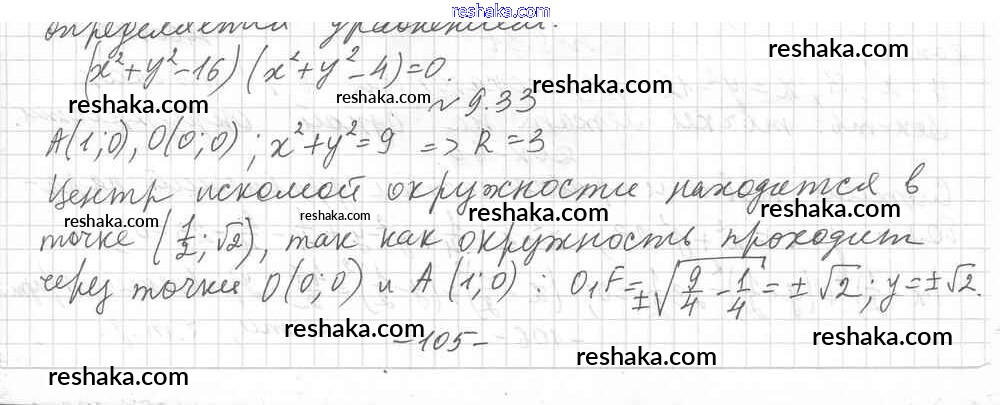 reshaka.com
определяется уравнением:
(x²+y²-16)(x²+y²-4)=0.
reshaka.com
reshaka.com
reshaka.com
reshaka.com
№ 9.33
A(1;0), O(0;0); x²+y²=9 => R=3
reshaka.com
reshaka.com
Центр искомой окружности находится в
reshaka.com
reshaka.com
reshaka.com
reshaka.com
точке (1/2; √2), так как окружность проходит
reshaka.com
reshaka.com
через точки O(0;0) и A(1;0): O₁F=±√(9/4-1/4)=±√2; y=±√2.
reshaka.com
reshaka.com
-105-
reshaka.com
reshaka.com